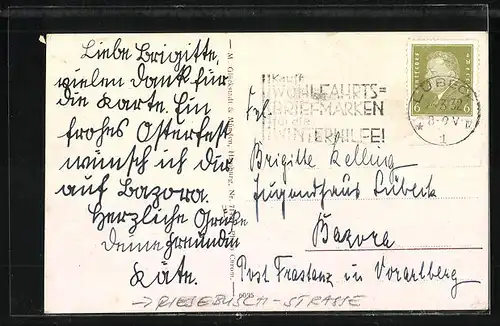 Liebe Brigitte,
vielen Dank für
die Karte. Ein
frohes Osterfest
wünsch ich dir
auf Bazora.
Herzliche Grüße
deine Freundin
Käte.
Kauft
WOHLFAHRTS=
BRIEFMARKEN
für die
WINTERHILFE!
LÜBECK
3.32
8-9 V
1
6 6
Frl.
Brigitte Kelling
Jugendhaus Lübeck
Bazora
Post Frastanz in Vorarlberg
→ RIESEBUSCH - STRASSE